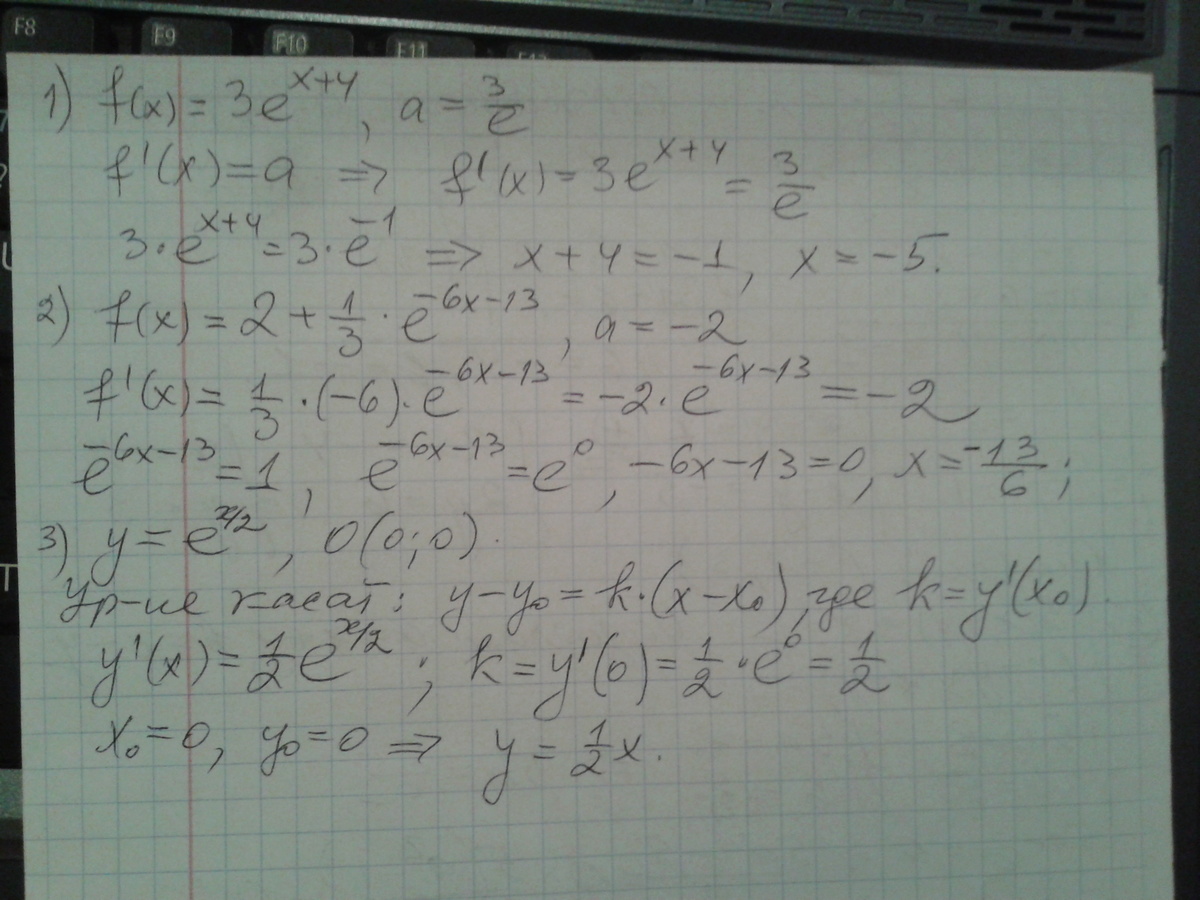 F8 F9 F10 F11 F12
1) f(x) = 3e^{x+4}, a = \frac{3}{e}
f'(x) = a ⇒ f'(x) = 3e^{x+4} = \frac{3}{e}
3·e^{x+4} = 3·e^{-1} ⇒ x+4 = -1, x = -5.
2) f(x) = 2 + \frac{1}{3} · e^{-6x-13}, a = -2
f'(x) = \frac{1}{3} · (-6) · e^{-6x-13} = -2 · e^{-6x-13} = -2
e^{-6x-13} = 1, e^{-6x-13} = e^0, -6x-13 = 0, x = \frac{-13}{6};
3) y = e^{x/2}, O(0;0).
Ур-ие касат: y-y_0 = k·(x-x_0), где k = y'(x_0).
y'(x) = \frac{1}{2}e^{x/2}; k = y'(0) = \frac{1}{2}·e^0 = \frac{1}{2}
x_0 = 0, y_0 = 0 ⇒ y = \frac{1}{2}x.